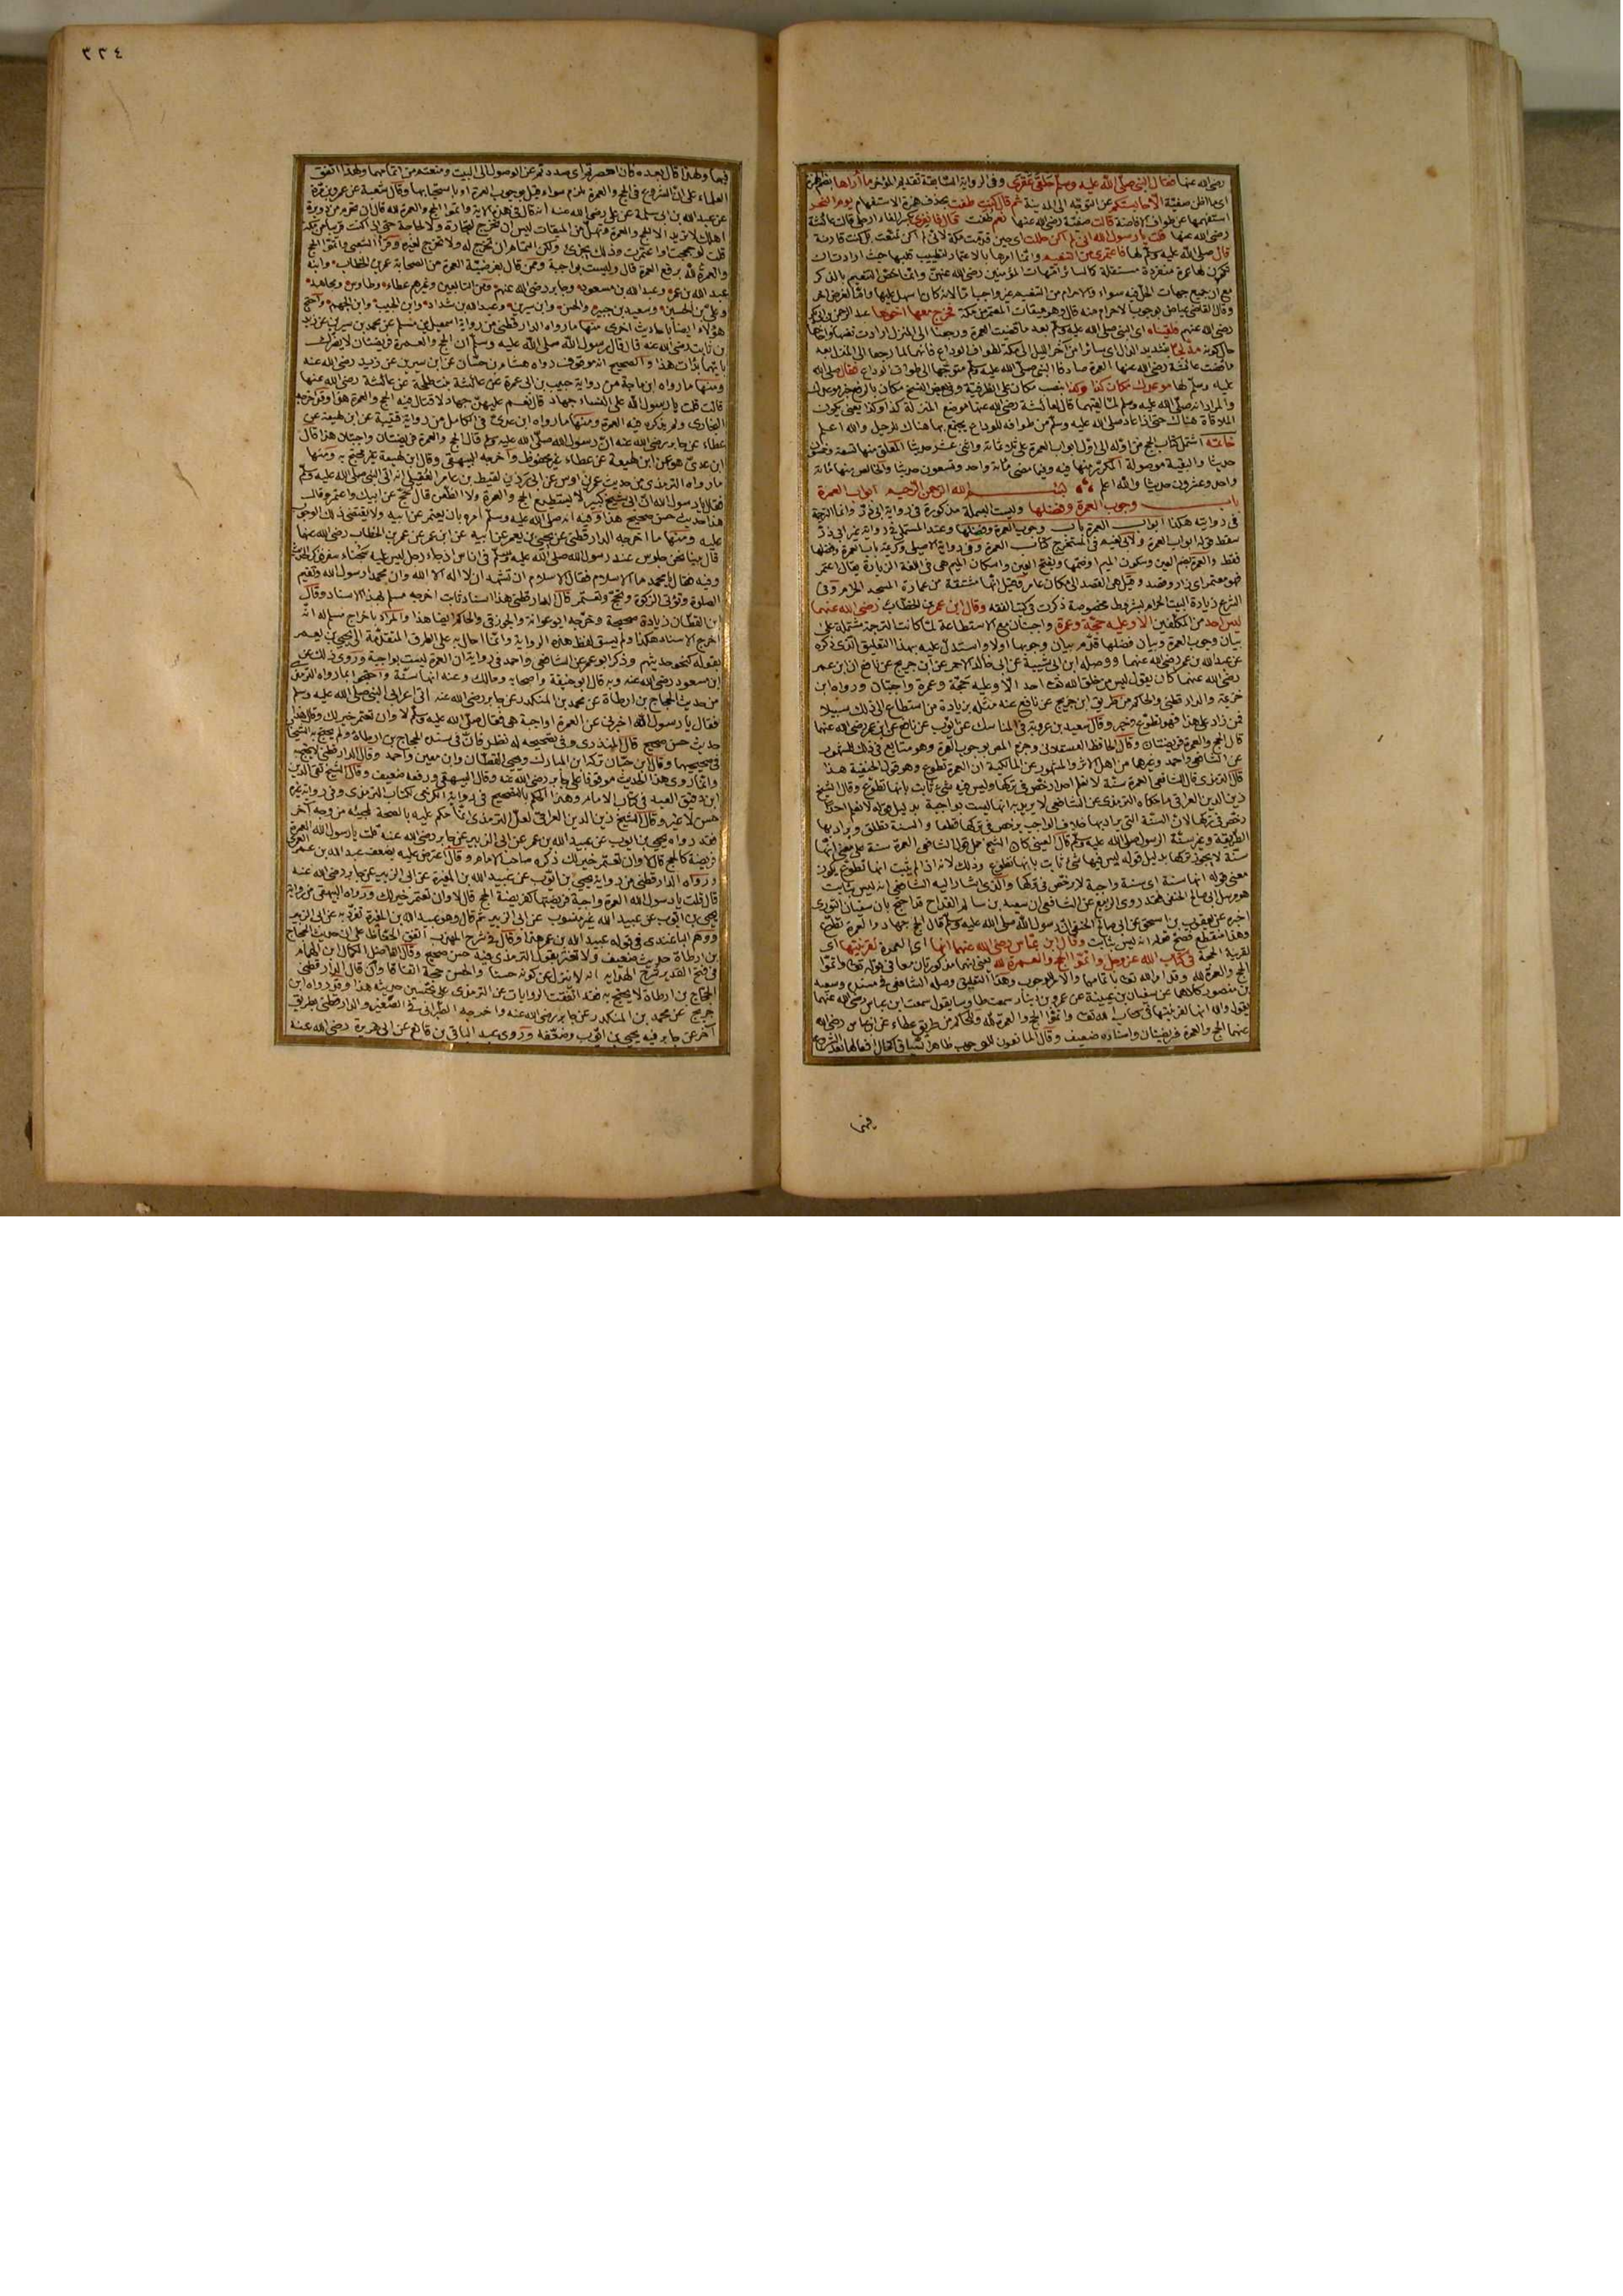 رضى الله عنها فقال النبى صلى الله عليه وسلم حلقى عقرى وفى الرواية السابقة تقديم المؤخر ما أراها بضم الهمزة
اى ما اظن صفية الا حابستكم عن التوجه الى المدينة ثم قال كنت طفت بحذف همزة الاستفهام يوم النحر
استفهمها عن طواف الافاضة قالت صفية رضى الله عنها نعم طفت قال فانفرى بكسر الفاء ارحلى قالت عائشة
رضى الله عنها قلت يا رسول الله انى لم اكن حللت اى حين قدمت مكة لانى لم اكن تمتعت بل كنت قارنة
قال صلى الله عليه وسلم لها فاعتمرى من التنعيم وانما امرها بالاعتمار لتطييب قلبها حيث ارادت ان
تكون لها عمرة منفردة مستقلة كما لسائر امهات المؤمنين رضى الله عنهن وانما خص التنعيم بالذكر
مع ان جميع جهات الحل فيه سواء والاحرام من التنعيم غير واجب
وقال القاضى عياض بوجوب الاحرام منه قال وهو ميقات المعتمرين من مكة فخرج معها اخوها عبد الرحمن بن ابى بكر
رضى الله عنهم فلقيناه اى النبى صلى الله عليه وسلم بعد ما قضيت العمرة ورجعنا الى المنزل
حال كونه مدلجا بتشديد الدال اى سائرا من آخر الليل الى مكة لطواف الوداع فانهما لما رجعا الى المنزل بعد
ما قضت عائشة رضى الله عنها العمرة صادفا النبى صلى الله عليه وسلم متوجها الى طواف الوداع فقال صلى الله
عليه وسلم لها موعدك مكان كذا وكذا نصب مكان على الظرفية وفى بعض النسخ مكان بالرفع خبر موعدك
والمراد انه صلى الله عليه وسلم لما لقيهما قال لعائشة رضى الله عنها موضع المنزلة كذا وكذا يعنى تكون
الملاقاة هناك حتى اذا عاد صلى الله عليه وسلم من طوافه للوداع يجتمع بها هناك للرحيل والله اعلم
خاتمة اشتمل كتاب الحج من اوله الى اول ابواب العمرة على ثلاثمائة واثنى عشر حديثا المعلق منها تسعة وخمسون
حديثا والبقية موصولة المكرر منها فيه وفيما مضى مائة واحد وتسعون حديثا والخالص منها مائة
واحد وعشرون حديثا والله اعلم بسم الله الرحمن الرحيم ابواب العمرة
باب وجوب العمرة وفضلها وليست البسملة مذكورة فى رواية ابى ذر وانما الترجمة
فى روايته هكذا ابواب العمرة باب وجوب العمرة وفضلها وعند المستملى فى رواية غير ابى ذر
سقط قوله ابواب العمرة ولابى نعيم فى المستخرج كتاب العمرة وفى رواية الاصيلى وكريمة باب العمرة وفضلها
فقط والعمرة بضم العين وسكون الميم او ضمها وبفتح العين واسكان الميم هى فى اللغة الزيارة يقال اعتمر
فهو معتمر اى زار وقصد وقيل هى القصد الى مكان عامر وقيل انها مشتقة من عمارة المسجد الحرام وفى
الشرع زيارة البيت الحرام بشروط مخصوصة ذكرت فى كتب الفقه وقال ابن عمر بن الخطاب رضى الله عنهما
ليس احد من المكلفين الا وعليه حجة وعمرة واجبتان مع الاستطاعة لما كانت الترجمة مشتملة على
بيان وجوب العمرة وبيان فضلها قدم بيان وجوبها اولا واستدل عليه بهذا التعليق الذى ذكره
عن عبد الله بن عمر رضى الله عنهما ووصله ابن ابى شيبة عن ابى خالد الاحمر عن ابن جريج عن نافع ان ابن عمر
رضى الله عنهما كان يقول ليس من خلق الله تعالى احد الا وعليه حجة وعمرة واجبتان ورواه ابن
خزيمة والدارقطنى والحاكم من طريق ابن جريج عن نافع عنه مثله بزيادة من استطاع الى ذلك سبيلا
فمن زاد على هذا فهو تطوع وخير وقال سعيد بن عروبة فى المناسك عن ايوب عن نافع عن ابن عمر رضى الله عنهما
قال الحج والعمرة فريضتان وقال الحافظ العسقلانى وجزم المص بوجوب العمرة وهو متابع فى ذلك للمشهور
عن الشافعى واحمد وغيرهما من اهل الاثر والمشهور عن المالكية ان العمرة تطوع وهو قول الحنفية هذا
قال الترمذى قال الشافعى العمرة سنة لا نعلم احدا رخص فى تركها وليس فيه شئ ثابت بانها تطوع وقال الشيخ
زين الدين العراقى ما حكاه الترمذى عن الشافعى لا يريد به انها ليست بواجبة بدليل قوله لا نعلم احدا
رخص فى تركها لان السنة التى يراد بها خلاف الواجب يرخص فى تركها قطعا والسنة تطلق ويراد بها
الطريقة وغير سنة الرسول صلى الله عليه وسلم قال العينى كان الشيخ حمل قول الشافعى العمرة سنة على معنى انها
سنة لا يجوز تركها بدليل قوله ليس فيها شئ ثابت بانها تطوع وذلك لانه اذا لم يثبت انها تطوع يكون
معنى قوله انها سنة اى سنة واجبة لا يرخص فى تركها والذى اشار اليه الشافعى انه ليس بثابت
هو مرسل ابى صالح الحنفى فقد روى الربيع عن الشافعى ان سعيد بن سالم القداح قد احتج بان سفيان الثورى
اخبره عن يعقوب بن اسحق عن ابى صالح الحنفى ان رسول الله صلى الله عليه وسلم قال الحج جهاد والعمرة تطوع
وهذا منقطع فصح قوله انه ليس بثابت وقال ابن عباس رضى الله عنهما انها اى العمرة لقرينتها اى
لقرينة الحجة فى كتاب الله عز وجل واتموا الحج والعمرة لله يعنى انهما مذكورتان معا فى قوله تعالى واتموا
الحج والعمرة لله وقد امر الله تعالى باتمامهما والامر للوجوب وهذا التعليق وصله الشافعى فى مسنده وسعيد
بن منصور كلاهما عن سفيان بن عيينة عن عمرو بن دينار سمعت طاوسا يقول سمعت ابن عباس رضى الله عنهما
يقول والله انها لقرينتها فى كتاب الله تعالى واتموا الحج والعمرة لله وللحاكم من طريق عطاء عن ابن عباس رضى الله
عنهما الحج والعمرة فريضتان واسناده ضعيف وقال المانعون للوجوب ظاهر السياق اكمال افعالها بعد الشروع
فيها
٣٣٤
فيها ولهذا قال بعده فان احصرتم اى صددتم عن الوصول الى البيت ومنعتم من اتمامهما ولهذا اتفق
العلماء على ان الشروع فى الحج والعمرة ملزم سواء قيل بوجوب العمرة او باستحبابها وقال شعبة عن عمرو بن مرة
عن عبد الله بن ابى سلمة عن على رضى الله عنه انه قال فى هذه الآية واتموا الحج والعمرة لله قال ان تحرم من دويرة
اهلك لا تريد الا الحج والعمرة وتهل من الميقات ليس ان تخرج لتجارة ولا لحاجة حتى اذا كنت قريبا من مكة
قلت لو حججت او اعتمرت وذلك يجزئ ولكن التمام ان تخرج له ولا تخرج لغيره وقرأ الشعبى واتموا الحج
والعمرة لله برفع العمرة قال وليست بواجبة وممن قال بفرضية العمرة من الصحابة عمر بن الخطاب وابنه
عبد الله بن عمر وعبد الله بن مسعود وجابر رضى الله عنهم ومن التابعين وغيرهم عطاء وطاوس ومجاهد
وعلى بن الحسين وسعيد بن جبير والحسن وابن سيرين وعبد الله بن شداد وابن الحبيب وابن الجهم واحتج
هؤلاء ايضا باحاديث اخرى منها ما رواه الدارقطنى من رواية اسمعيل بن مسلم عن محمد بن سيرين عن زيد
بن ثابت رضى الله عنه قال قال رسول الله صلى الله عليه وسلم ان الحج والعمرة فريضتان لا يضرك
بايهما بدأت هذا والصحيح انه موقوف رواه هشام بن حسان عن ابن سيرين عن زيد رضى الله عنه
ومنها ما رواه ابن ماجة من رواية حبيب بن ابى عمرة عن عائشة بنت طلحة عن عائشة رضى الله عنها
قالت قلت يا رسول الله على النساء جهاد قال نعم عليهن جهاد لا قتال فيه الحج والعمرة هذا وقد اخرجه
البخارى ولم يذكر فيه العمرة ومنها ما رواه ابن عدى فى الكامل من رواية قتيبة عن ابن لهيعة عن
عطاء عن جابر رضى الله عنه ان رسول الله صلى الله عليه وسلم قال الحج والعمرة فريضتان واجبتان هذا قال
ابن عدى هو عن ابن لهيعة عن عطاء غير محفوظ واخرجه البيهقى وقال ابن لهيعة غير محتج به ومنها
ما رواه الترمذى من حديث عمرو بن اوس عن ابى رزين لقيط بن عامر العقيلى انه اتى النبى صلى الله عليه وسلم
فقال يا رسول الله ان ابى شيخ كبير لا يستطيع الحج والعمرة ولا الظعن قال حج عن ابيك واعتمر وقال
هذا حديث حسن صحيح هذا وفيه انه صلى الله عليه وسلم امره بان يعتمر عن ابيه ولا يقتضى ذلك الوجوب
عليه ومنها ما اخرجه الدارقطنى عن يحيى بن يعمر عن ابيه عن ابن عمر عن عمر بن الخطاب رضى الله عنهما
قال بينا نحن جلوس عند رسول الله صلى الله عليه وسلم فى اناس اذ جاء رجل ليس عليه سحناء سفر فذكر الحديث
وفيه فقال يا محمد ما الاسلام فقال الاسلام ان تشهد ان لا اله الا الله وان محمدا رسول الله وتقيم
الصلوة وتؤتى الزكوة وتحج وتعتمر قال الدارقطنى هذا اسناد ثابت اخرجه مسلم بهذا الاسناد وقال
ابن القطان زيادة صحيحة وخرجه ابو عوانة والجوزقى والحاكم ايضا هذا والمراد باخراج مسلم له انه
اخرج الاسناد هكذا ولم يسق لفظ هذه الرواية وانما احال به على الطرق المتقدمة الى يحيى بن يعمر
بقوله كنحو حديثهم وذكر ابو عمر عن الشافعى واحمد فى رواية ان العمرة ليست بواجبة وروى ذلك عن
ابن مسعود رضى الله عنه وبه قال ابو حنيفة واصحابه ومالك وعنه انها سنة واحتجوا بما رواه الترمذى
من حديث الحجاج بن ارطاة عن محمد بن المنكدر عن جابر رضى الله عنه اتى اعرابى النبى صلى الله عليه وسلم
فقال يا رسول الله اخبرنى عن العمرة اواجبة هى فقال صلى الله عليه وسلم لا وان تعتمر خير لك وقال هذا
حديث حسن صحيح قال المنذرى وفى تصحيحه له نظر فان فى سنده الحجاج بن ارطاة ولم يحتج به الشيخان
فى صحيحيهما وقال ابن حبان تركه ابن المبارك ويحيى القطان وابن معين واحمد وقال الدارقطنى لا يحتج به
وانما روى هذا الحديث موقوفا على جابر رضى الله عنه وقال البيهقى ورفعه ضعيف وقال الشيخ تقى الدين
ابن دقيق العيد فى كتاب الامام وهذا الحكم بالتصحيح فى رواية الكرخى لكتاب الترمذى وفى رواية غيره
حسن لا غير وقال الشيخ زين الدين العراقى لعل الترمذى انما حكم عليه بالصحة لمجيئه من وجه آخر
فقد رواه يحيى بن ايوب عن عبيد الله بن عمر عن ابى الزبير عن جابر رضى الله عنه قلت يا رسول الله العمرة
فريضة كالحج قال لا وان تعتمر خير لك ذكره صاحب الامام وقال اعترض عليه بضعف عبد الله بن عمر العمرى
ورواه الدارقطنى من رواية يحيى بن ايوب عن عبيد الله بن المغيرة عن ابى الزبير عن جابر رضى الله عنه
قال قلت يا رسول الله العمرة واجبة فريضتها كفريضة الحج قال لا وان تعتمر خير لك ورواه البيهقى من رواية
يحيى بن ايوب عن عبيد الله غير منسوب عن ابى الزبير ثم قال وهو عبيد الله بن المغيرة تفرد به عن ابى الزبير
ووهم الباغندى فى قوله عبيد الله بن عمر هذا وقال فى شرح المهذب اتفق الحفاظ على ان حديث الحجاج
بن ارطاة حديث ضعيف ولا تغتر بقول الترمذى فيه حسن صحيح وقال الفاضل الكمال ابن الهمام
فى فتح القدير شرح الهداية انه لا ينزل عن كونه حسنا والحسن حجة اتفاقا وان قال الدارقطنى
الحجاج بن ارطاة لا يحتج به فقد اتفقت الروايات عن الترمذى على تحسين حديثه هذا وقد رواه ابن
جريج عن محمد بن المنكدر عن جابر رضى الله عنه واخرجه الطبرانى فى الصغير والدارقطنى بطريق
آخر عن جابر فيه يحيى بن ايوب وضعفه وروى عبد الباقى بن قانع عن ابى هريرة رضى الله عنه